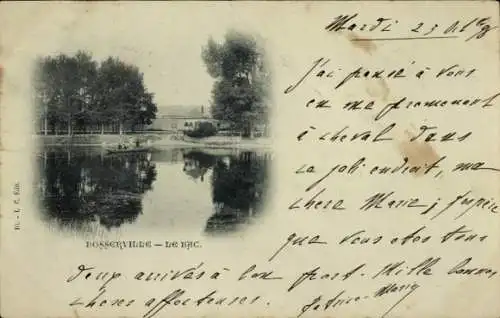 Mardi 23
J'ai pensé à vous
en me promenant
à cheval dans
ce joli endroit, ma
chère Marie, j'espère
que vous êtes tous
deux arrivés à bon port. Mille bonnes
choses affectueuses
BOSSERVILLE — LE BAC.